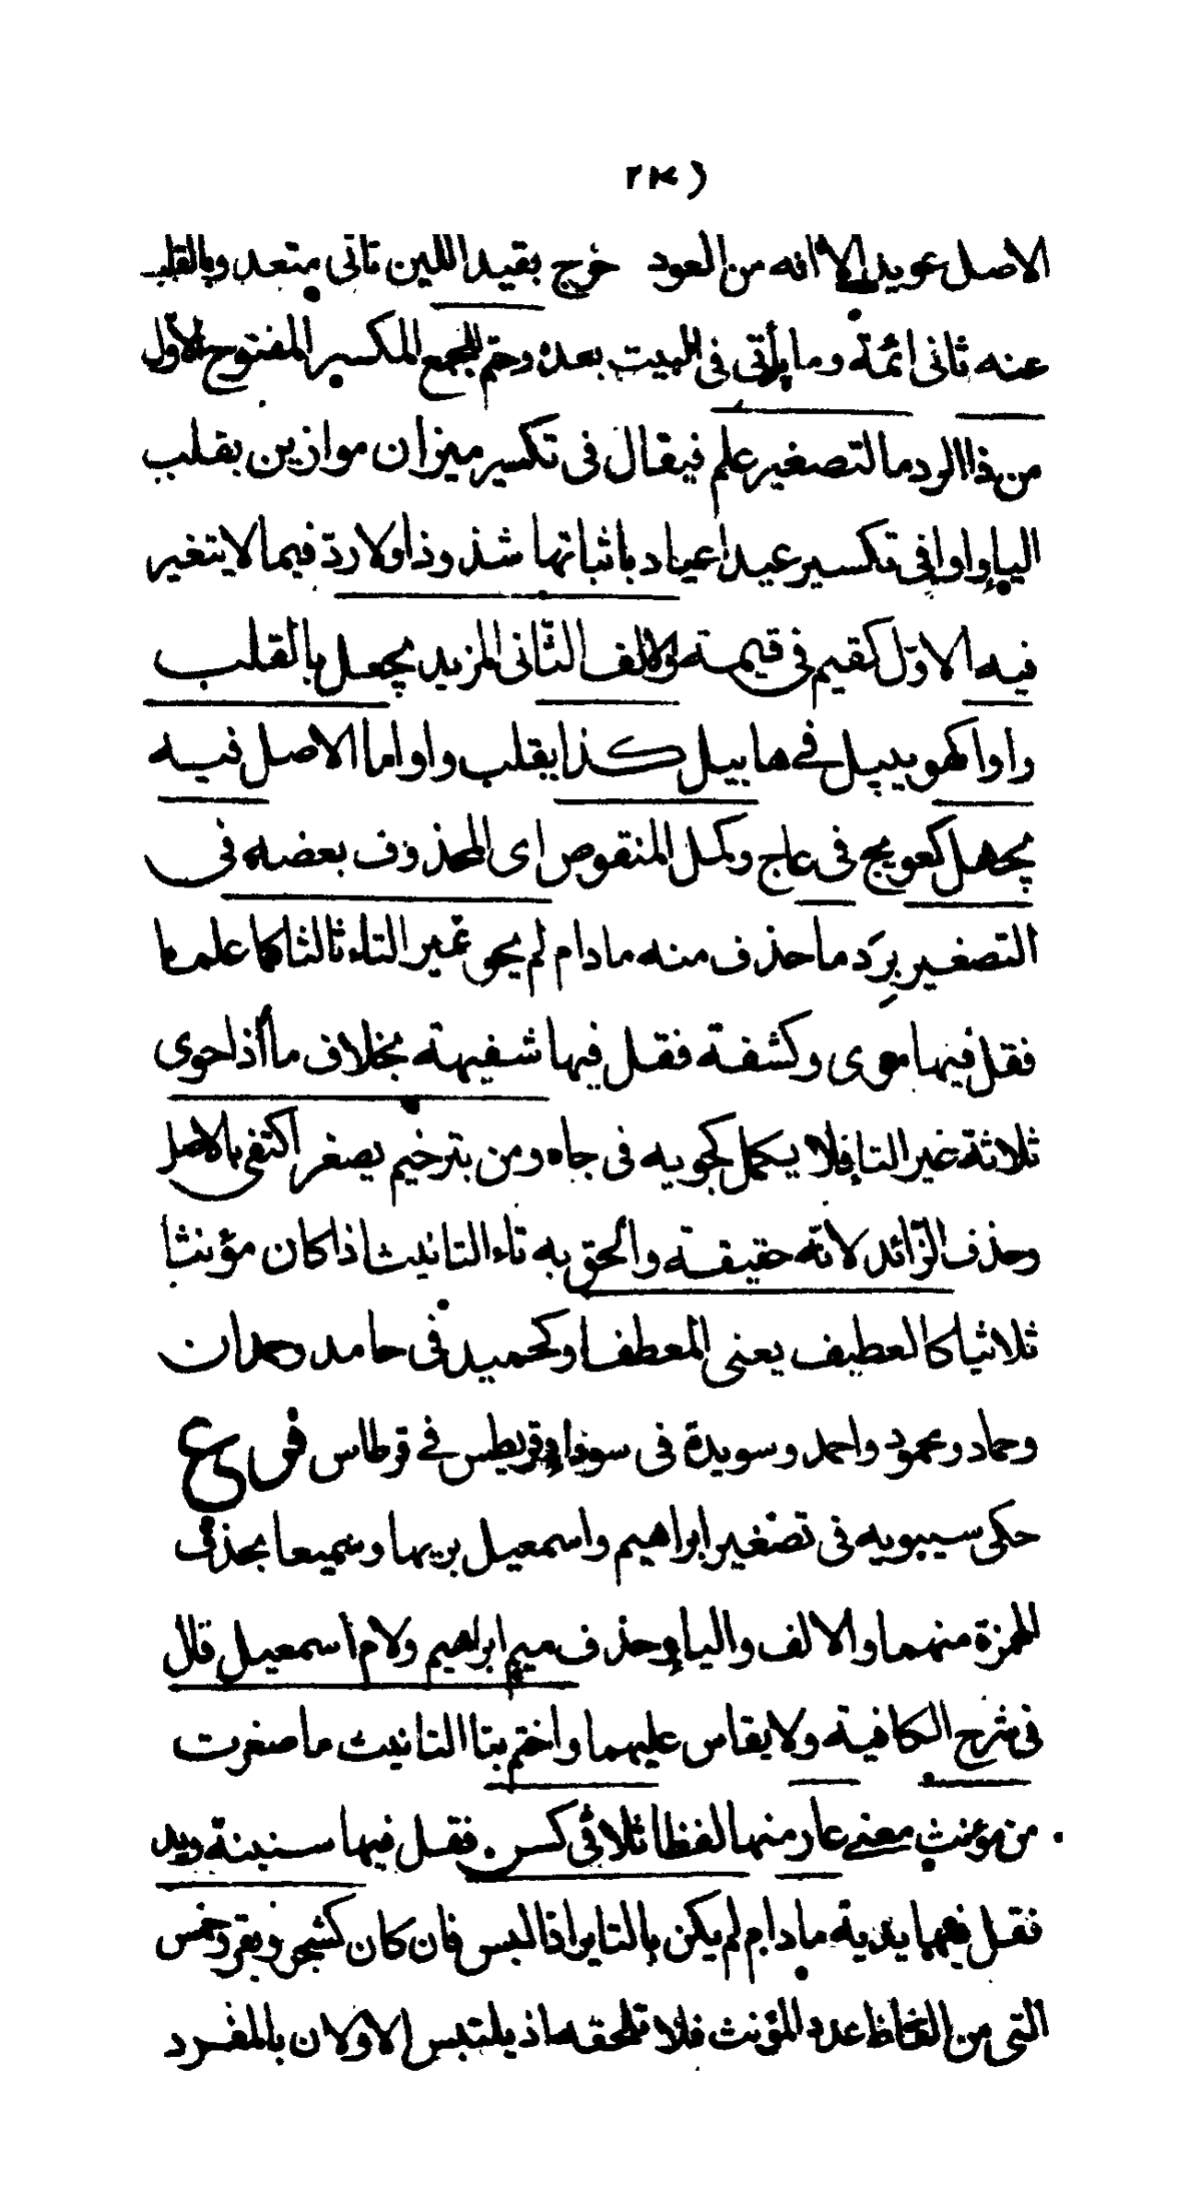 الاصل عويد الا انه من العود خرج بقيد اللين ثانى متعد وبالقلب
عنه ثانى ائمة وما يأتى فى البيت بعده وحتم للجمع المكسير المفتوح الاول
من ذا الرد ما لتصغير علم فيقال فى تكسير ميزان موازين بقلب
الياء واوا وفى تكسير عيد اعياد باثباتها شذوذا ولا ردّ فيما لا يتغير
فيه الاوّل كقيم فى قيمة والالف الثّانى المزيد يجعل بالقلب
واوا كهويبيل فے هابيل كذا يقلب واوا ما الاصل فيه
يجهل كعويج فى عاج وكمل المنقوص اى المحذوف بعضه فى
التصغير بردّ ما حذف منه مادام لم يحو غير التاء ثالثا كما علمما
فقل فيها موى وكشفة فقل فيها شفيهة بخلاف ما اذا حوى
ثلاثة غير التاء فلا يكمل كجويه فى جاه ومن بترخيم يصغر اكتفى بالاصل
وحذف الزّائد لانّه حقيقة والحق به تاء التانيث اذا كان مؤنثا
ثلاثيا كالعطيف يعنى المعطفا وكحميد فى حامد وحمدان
وحماد ومحمود واحمد وسويدة فى سوداء وقريطس فے قرطاس فرع
حكى سيبويه فى تصغير ابراهيم واسمعيل بريها وسميعا بحذف
الهمزة منهما والالف والياء وحذف ميم ابراهيم ولام اسمعيل قال
فى شرح الكافية ولا يقاس عليهما واختم بتا التانيث ما صغرت
من مؤنث معنے عار منها لفظا ثلاثى كسن فقل فيها سنينة ويد
فقل فيها يدية مادام لم يكن بالتا يرا ذا لبس فان كان كشجر وبقر وخمس
التى من الفاظ عدد المؤنث فلا تلحقه اذ يلتبس الاولان بالمفرد